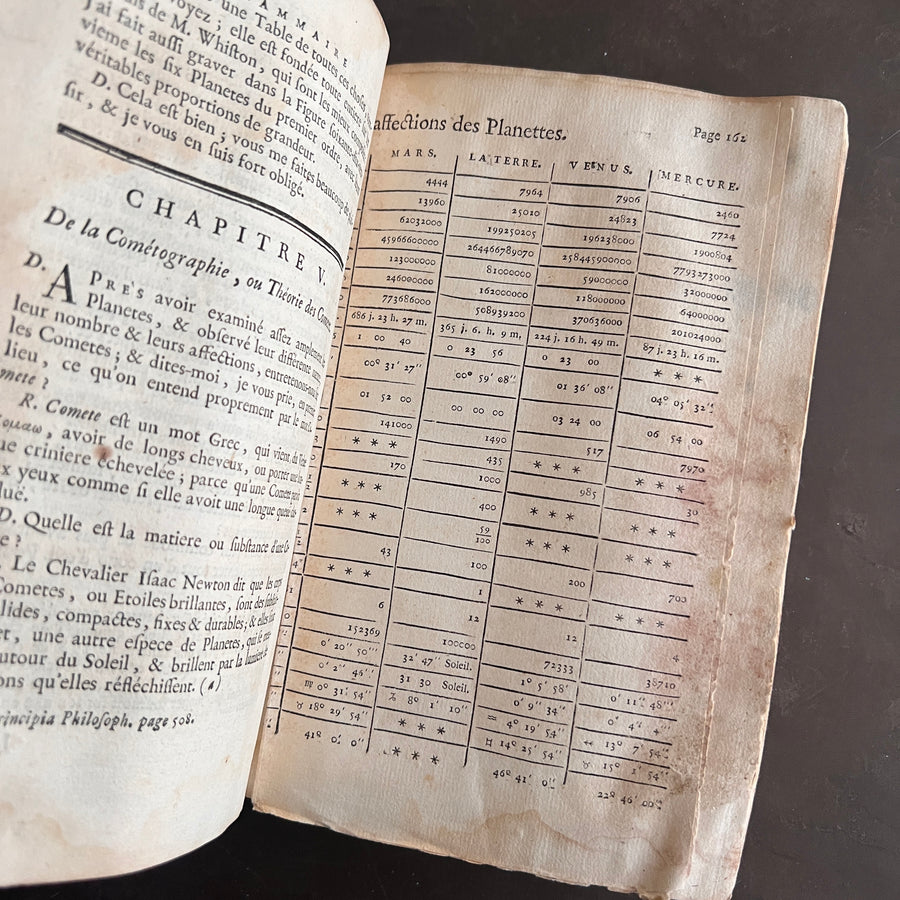 AMMAIRE
voyez ; elle est fondée toute entiere
une Table de toutes ces choses
de M. Whiſton, qui ſont les mieux
J'ai fait auſſi graver dans la Figure
vieme les ſix Planetes du premier ordre, avec
véritables proportions de grandeur.
D. Cela eſt bien ; vous me faites beaucoup de
ſir, & je vous en ſuis fort obligé.
CHAPITRE V.
De la Cométographie, ou Théorie des
D. APRE'S avoir examiné aſſez amplement
Planetes, & obſervé leur différente
leur nombre & leurs affections, entretenons-nous
les Cometes ; & dites-moi, je vous prie, en
lieu, ce qu'on entend proprement par le mot
?
R. Comete eſt un mot Grec, qui vient du Verbe
, avoir de longs cheveux, ou porter
criniere échevelée ; parce qu'une Comete
yeux comme ſi elle avoit une longue queue
D. Quelle eſt la matiere ou ſubſtance d'une
?
Le Chevalier Iſaac Newton dit que les
Cometes, ou Etoiles brillantes, ſont des
, compactes, fixes & durables ; &
, une autre eſpece de Planetes, qui ſe
autour du Soleil, & brillent par la lumiere
qu'elles réfléchiſſent. (a)
Principia Philoſoph. page 508.
affections des Planettes. Page 162
MARS. LA TERRE. VENUS. MERCURE.
4444 7964 7906 2460
13960 25010 24823 7724
62032000 199250205 196238000 1900804
45966600000 264466789070 258445900000 7793273000
123000000 81000000 59000000 32000000
246000000 162000000 118000000 64000000
773686000 508939200 370636000 201024000
686 j. 23 h. 27 m. 365 j. 6 h. 9 m. 224 j. 16 h. 49 m. 87 j. 23 h. 16 m.
1 00 40 0 23 56 0 23 00 * * *
00° 31' 27'' 00° 59' 08'' 01 36' 08'' 04° 05' 32''
01 52 00 00 00 00 03 24 00 06 54 00
141000 1490 517 7970
* * * 435 * * * * * *
170 1000 985 30
* * * 400 * * * * * *
* * * 59/100 * * * * * *
43 100 200 700
* * * 1 * * * * * *
6 12 12 4
152369 100000 72333 38710
0' 20'' 50''' 32' 47'' Soleil. 1° 5' 58' 0' 11'' 48'''
0' 2'' 46''' 31 30 Soleil. 0' 9'' 34''
♏ 0° 31' 54'' ♑ 8° 1' 10'' ♒ 4° 19' 54'' ♓ 13° 7' 54''
♉ 18° 29' 54'' * * * ♊ 14° 25' 54'' ♉ 15° 1' 54''
41° 0' 0'' * * * 46° 41' 0'' 22° 46' 00''